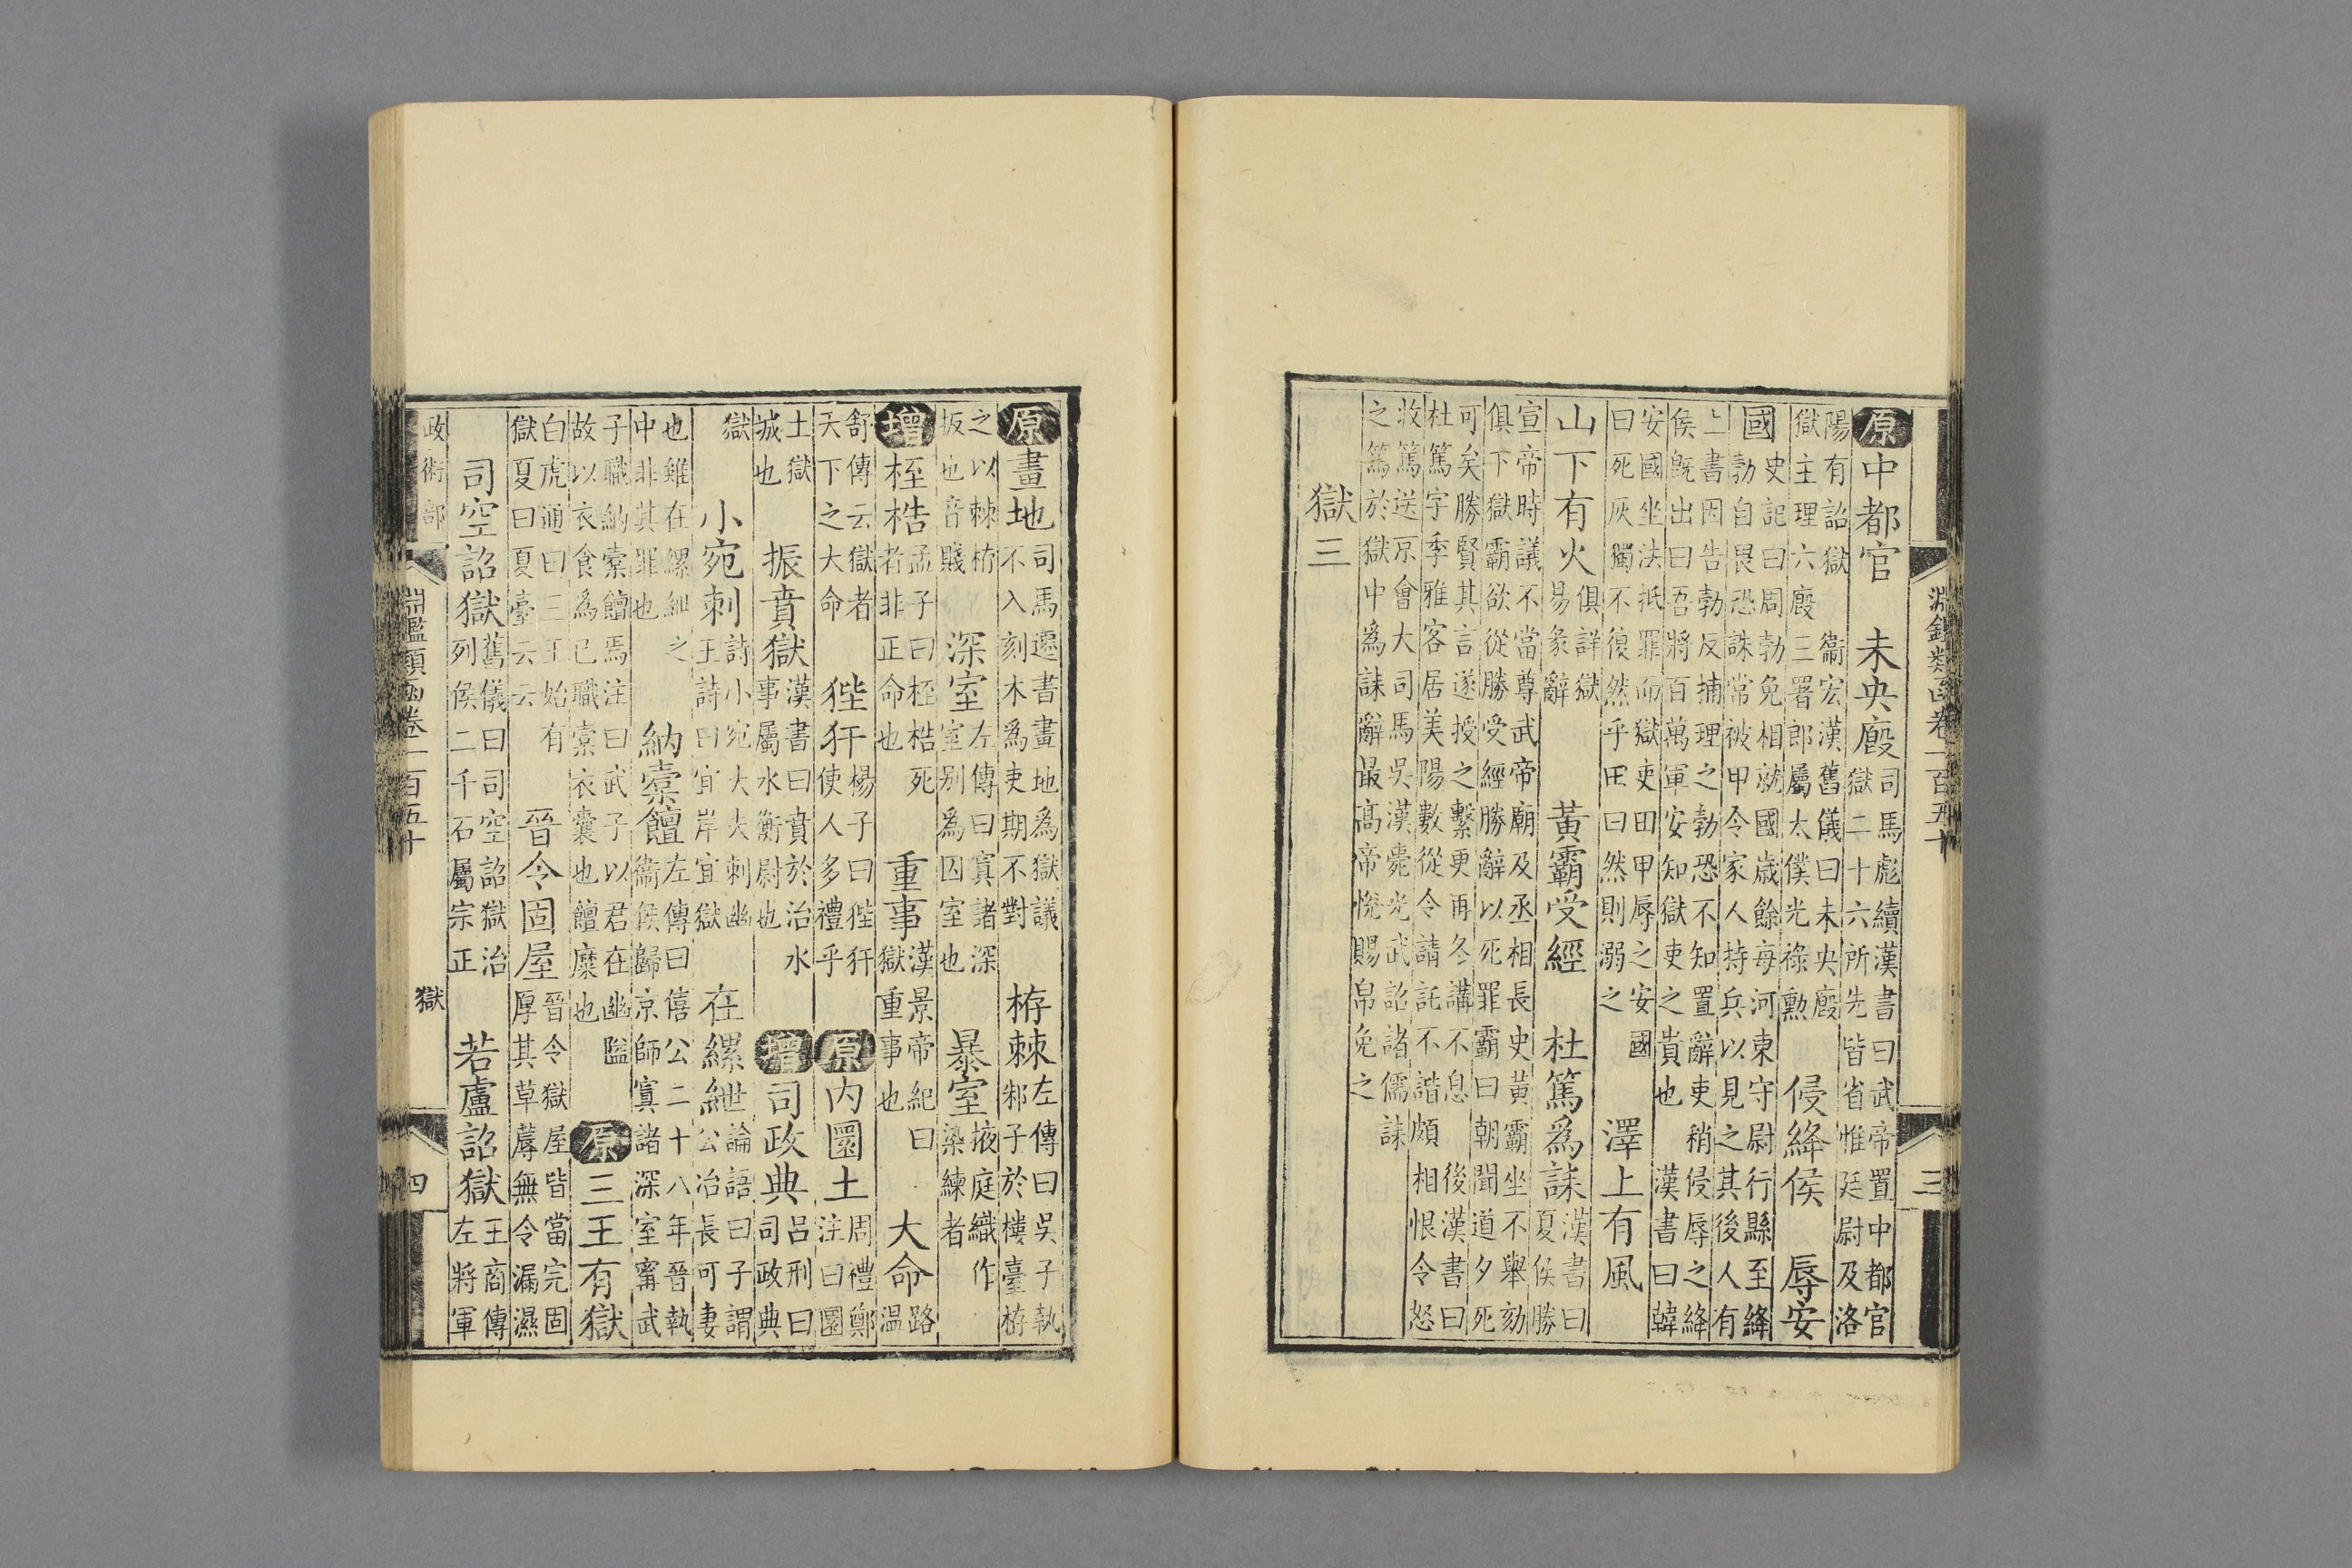 原中都官 未央廄司馬彪續漢書曰武帝置中都官獄二十六所先皆省惟廷尉及洛
陽有詔獄獄主理六廄三署郎屬太僕光祿勲衞宏漢舊儀曰未央廄 侵絳侯 辱安
國史記曰周勃免相就國歲餘每河東守尉行縣至絳勃自畏恐誅常被甲令家人持兵以見之其後人有
上書因告勃反捕理之勃恐不知置辭吏稍侵辱之絳侯既出曰吾將百萬軍安知獄吏之貴也 漢書曰韓
安國坐法抵罪而獄吏田甲辱之安國曰死灰獨不復然乎田曰然則溺之 澤上有風
山下有火俱詳獄易彖辭 黃霸受經 杜篤爲誄漢書曰夏侯勝
宣帝時議不當尊武帝廟及丞相長史黃霸坐不舉劾俱下獄霸欲從勝受經勝辭以死罪霸曰朝聞道夕死
可矣勝賢其言遂授之繫更再冬講不息 後漢書曰杜篤字季雅客居美陽數從令請託不諧頗相恨令怒
收篤送京會大司馬吳漢薨光武詔諸儒誄之篤於獄中爲誄辭最高帝悅賜帛免之
獄三
淵鑑類函卷一百五十
三
原畫地司馬遷書畫地爲獄議不入刻木爲吏期不對 栫棘左傳曰吳子執邾子於樓臺栫
之以棘栫坂也音賤 深室左傳曰寘諸深室別爲囚室也 暴室掖庭織作染練者
增桎梏孟子曰桎梏死者非正命也 重事漢景帝紀曰獄重事也 大命路温
舒傳云獄者天下之大命 狴犴楊子曰狴犴使人多禮乎 原內圜土周禮鄭注曰圜
土獄城也 振賁獄漢書曰賁於治水事屬水衡尉也 增司政典呂刑曰司政典
獄 小宛刺詩小宛大夫刺幽王詩曰宜岸宜獄 在縲紲論語曰子謂公冶長可妻
也雖在縲紲之中非其罪也 納橐饘左傳曰僖公二十八年晉執衞侯歸京師寘諸深室甯武
子職納橐饘焉注曰武子以君在幽隘故以衣食爲己職橐衣囊也饘糜也 原三王有獄
白虎通曰三王始有獄夏曰夏臺云云 晉令固屋晉令獄屋皆當完固厚其草蓐無令漏濕
司空詔獄舊儀曰司空詔獄治列侯二千石屬宗正 若盧詔獄王商傳左將軍
政術部
淵鑑類函卷一百五十
獄
四